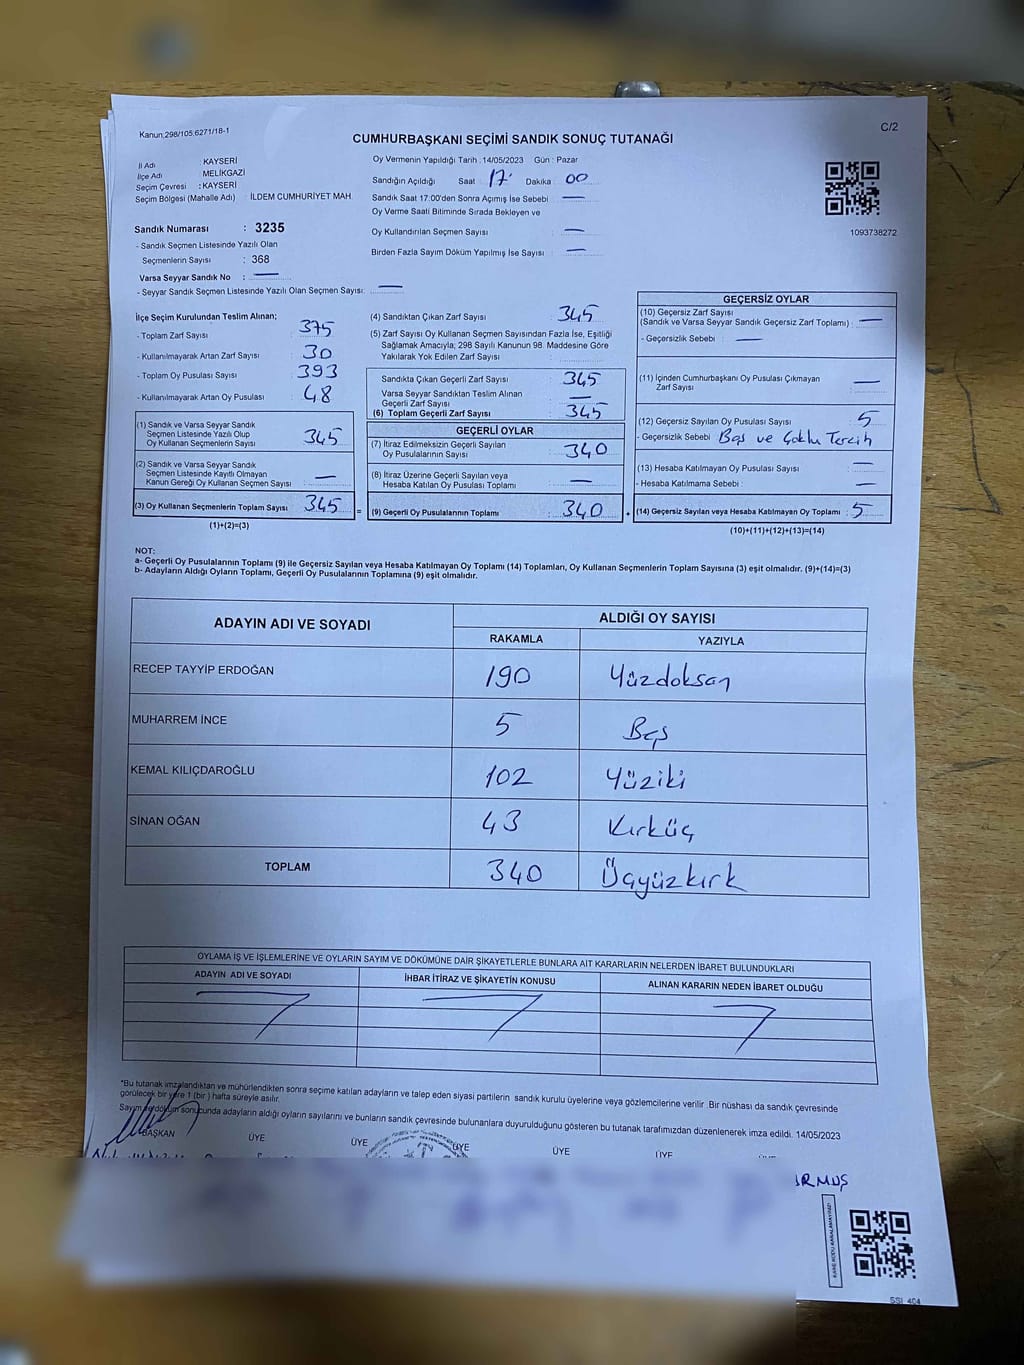 Kanun:298/105;6271/18-1
C/2
CUMHURBAŞKANI SEÇİMİ SANDIK SONUÇ TUTANAĞI
İl Adı : KAYSERİ
İlçe Adı : MELİKGAZİ
Seçim Çevresi : KAYSERİ
Seçim Bölgesi (Mahalle Adı) : İLDEM CUMHURİYET MAH.
Sandık Numarası : 3235
- Sandık Seçmen Listesinde Yazılı Olan
Seçmenlerin Sayısı : 368
Varsa Seyyar Sandık No : —
- Seyyar Sandık Seçmen Listesinde Yazılı Olan Seçmen Sayısı: —
Oy Vermenin Yapıldığı Tarih : 14/05/2023 Gün : Pazar
Sandığın Açıldığı Saat : 17 Dakika : 00
Sandık Saat 17:00'den Sonra Açımış İse Sebebi —
Oy Verme Saati Bitiminde Sırada Bekleyen ve
Oy Kullandırılan Seçmen Sayısı : —
Birden Fazla Sayım Döküm Yapılmış İse Sayısı : —
1093738272
İlçe Seçim Kurulundan Teslim Alınan;
- Toplam Zarf Sayısı : 375
- Kullanılmayarak Artan Zarf Sayısı : 30
- Toplam Oy Pusulası Sayısı : 393
- Kullanılmayarak Artan Oy Pusulası : 48
(1) Sandık ve Varsa Seyyar Sandık
Seçmen Listesinde Yazılı Olup
Oy Kullanan Seçmenlerin Sayısı : 345
(2) Sandık ve Varsa Seyyar Sandık
Seçmen Listesinde Kayıtlı Olmayan
Kanun Gereği Oy Kullanan Seçmen Sayısı : —
(3) Oy Kullanan Seçmenlerin Toplam Sayısı : 345 =
(1)+(2)=(3)
(4) Sandıktan Çıkan Zarf Sayısı : 345
(5) Zarf Sayısı Oy Kullanan Seçmen Sayısından Fazla İse, Eşitliği
Sağlamak Amacıyla; 298 Sayılı Kanunun 98. Maddesine Göre
Yakılarak Yok Edilen Zarf Sayısı :
Sandıkta Çıkan Geçerli Zarf Sayısı : 345
Varsa Seyyar Sandıktan Teslim Alınan
Geçerli Zarf Sayısı : —
(6) Toplam Geçerli Zarf Sayısı : 345
GEÇERLİ OYLAR
(7) İtiraz Edilmeksizin Geçerli Sayılan
Oy Pusulalarının Sayısı : 340
(8) İtiraz Üzerine Geçerli Sayılan veya
Hesaba Katılan Oy Pusulası Toplamı : —
(9) Geçerli Oy Pusulalarının Toplamı : 340 +
GEÇERSİZ OYLAR
(10) Geçersiz Zarf Sayısı
(Sandık ve Varsa Seyyar Sandık Geçersiz Zarf Toplamı) : —
- Geçersizlik Sebebi : —
(11) İçinden Cumhurbaşkanı Oy Pusulası Çıkmayan
Zarf Sayısı : —
(12) Geçersiz Sayılan Oy Pusulası Sayısı : 5
- Geçersizlik Sebebi : Boş ve Çoklu Tercih
(13) Hesaba Katılmayan Oy Pusulası Sayısı : —
- Hesaba Katılmama Sebebi : —
(14) Geçersiz Sayılan veya Hesaba Katılmayan Oy Toplamı : 5
(10)+(11)+(12)+(13)=(14)
NOT:
a- Geçerli Oy Pusulalarının Toplamı (9) ile Geçersiz Sayılan veya Hesaba Katılmayan Oy Toplamı (14) Toplamları, Oy Kullanan Seçmenlerin Toplam Sayısına (3) eşit olmalıdır. (9)+(14)=(3)
b- Adayların Aldığı Oyların Toplamı, Geçerli Oy Pusulalarının Toplamına (9) eşit olmalıdır.
ADAYIN ADI VE SOYADI ALDIĞI OY SAYISI
RAKAMLA YAZIYLA
RECEP TAYYİP ERDOĞAN 190 Yüzdoksan
MUHARREM İNCE 5 Beş
KEMAL KILIÇDAROĞLU 102 Yüziki
SİNAN OĞAN 43 Kırküç
TOPLAM 340 Üçyüzkırk
OYLAMA İŞ VE İŞLEMLERİNE VE OYLARIN SAYIM VE DÖKÜMÜNE DAİR ŞİKAYETLERLE BUNLARA AİT KARARLARIN NELERDEN İBARET BULUNDUKLARI
ADAYIN ADI VE SOYADI İHBAR İTİRAZ VE ŞİKAYETİN KONUSU ALINAN KARARIN NEDEN İBARET OLDUĞU
*Bu tutanak imzalandıktan ve mühürlendikten sonra seçime katılan adayların ve talep eden siyasi partilerin sandık kurulu üyelerine veya gözlemcilerine verilir .Bir nüshası da sandık çevresinde
görülecek bir yere 1 (bir ) hafta süreyle asılır.
Sayım ve döküm sonucunda adayların aldığı oyların sayılarını ve bunların sandık çevresinde bulunanlara duyurulduğunu gösteren bu tutanak tarafımızdan düzenlenerek imza edildi. 14/05/2023
BAŞKAN ÜYE ÜYE ÜYE ÜYE ÜYE
SSI_404